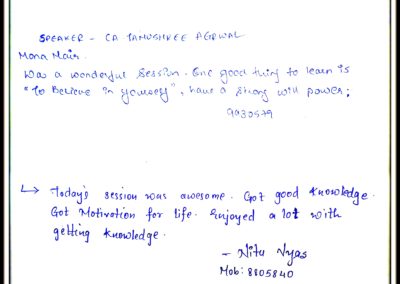 SPEAKER - CA TANUSHREE AGRWAL
Mona Nair.
Was a wonderful session. One good thing to learn is
"To Believe in yourself", have a strong will power;
9930579
↳ Today's session was awesome. Got good knowledge.
Got Motivation for life. Enjoyed a lot with
getting knowledge.
- Nitu Vyas
Mob: 8805840